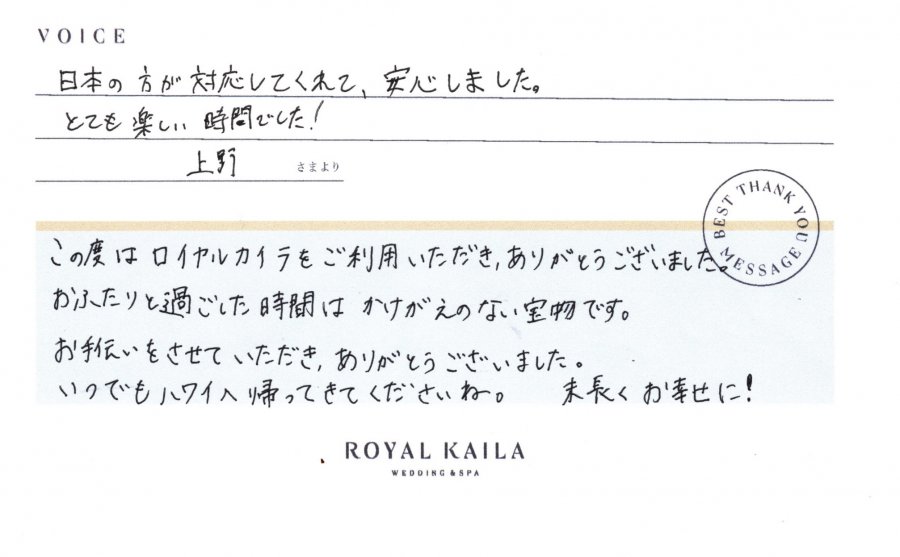 VOICE
日本の方が対応してくれて、安心しました。
とても楽しい時間でした!
上野 さまより
BEST THANK YOU MESSAGE
この度はロイヤルカイラをご利用いただき、ありがとうございました。
おふたりと過ごした時間はかけがえのない宝物です。
お手伝いをさせていただき、ありがとうございました。
いつでもハワイへ帰ってきてくださいね。 末長くお幸せに!
ROYAL KAILA
WEDDING & SPA